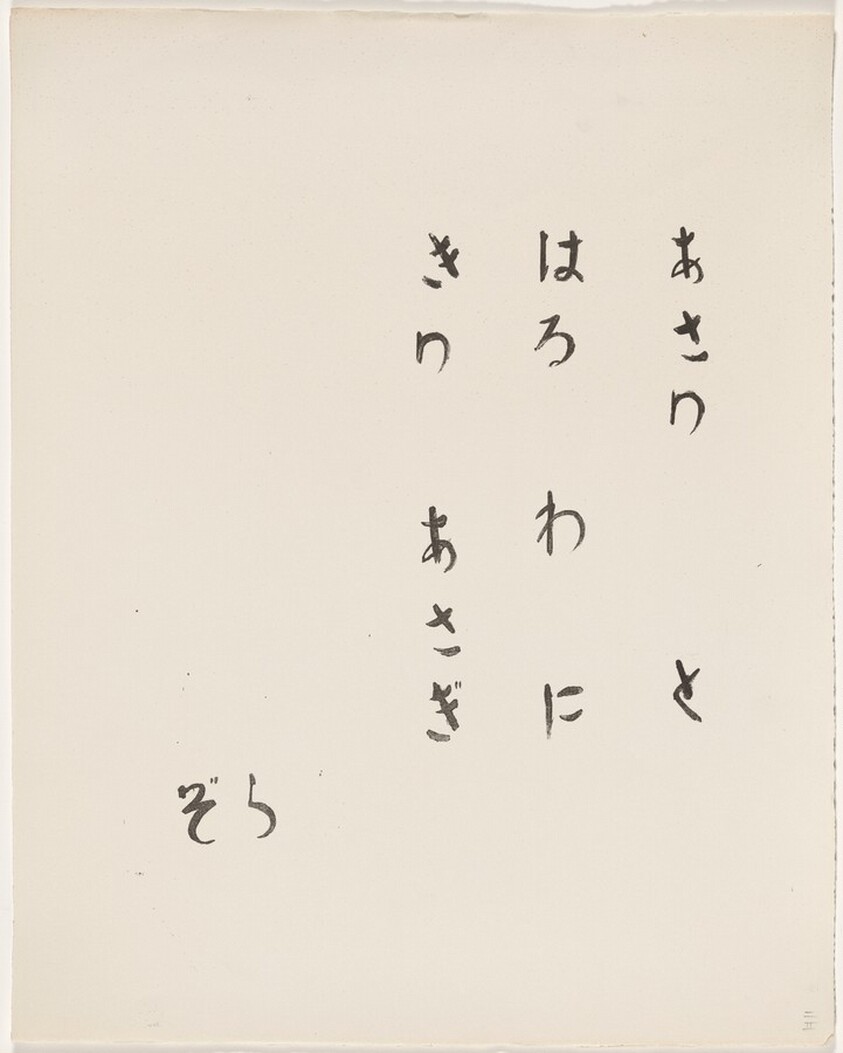 あさり と
はろ わ に
きり あさぎ
ぞら